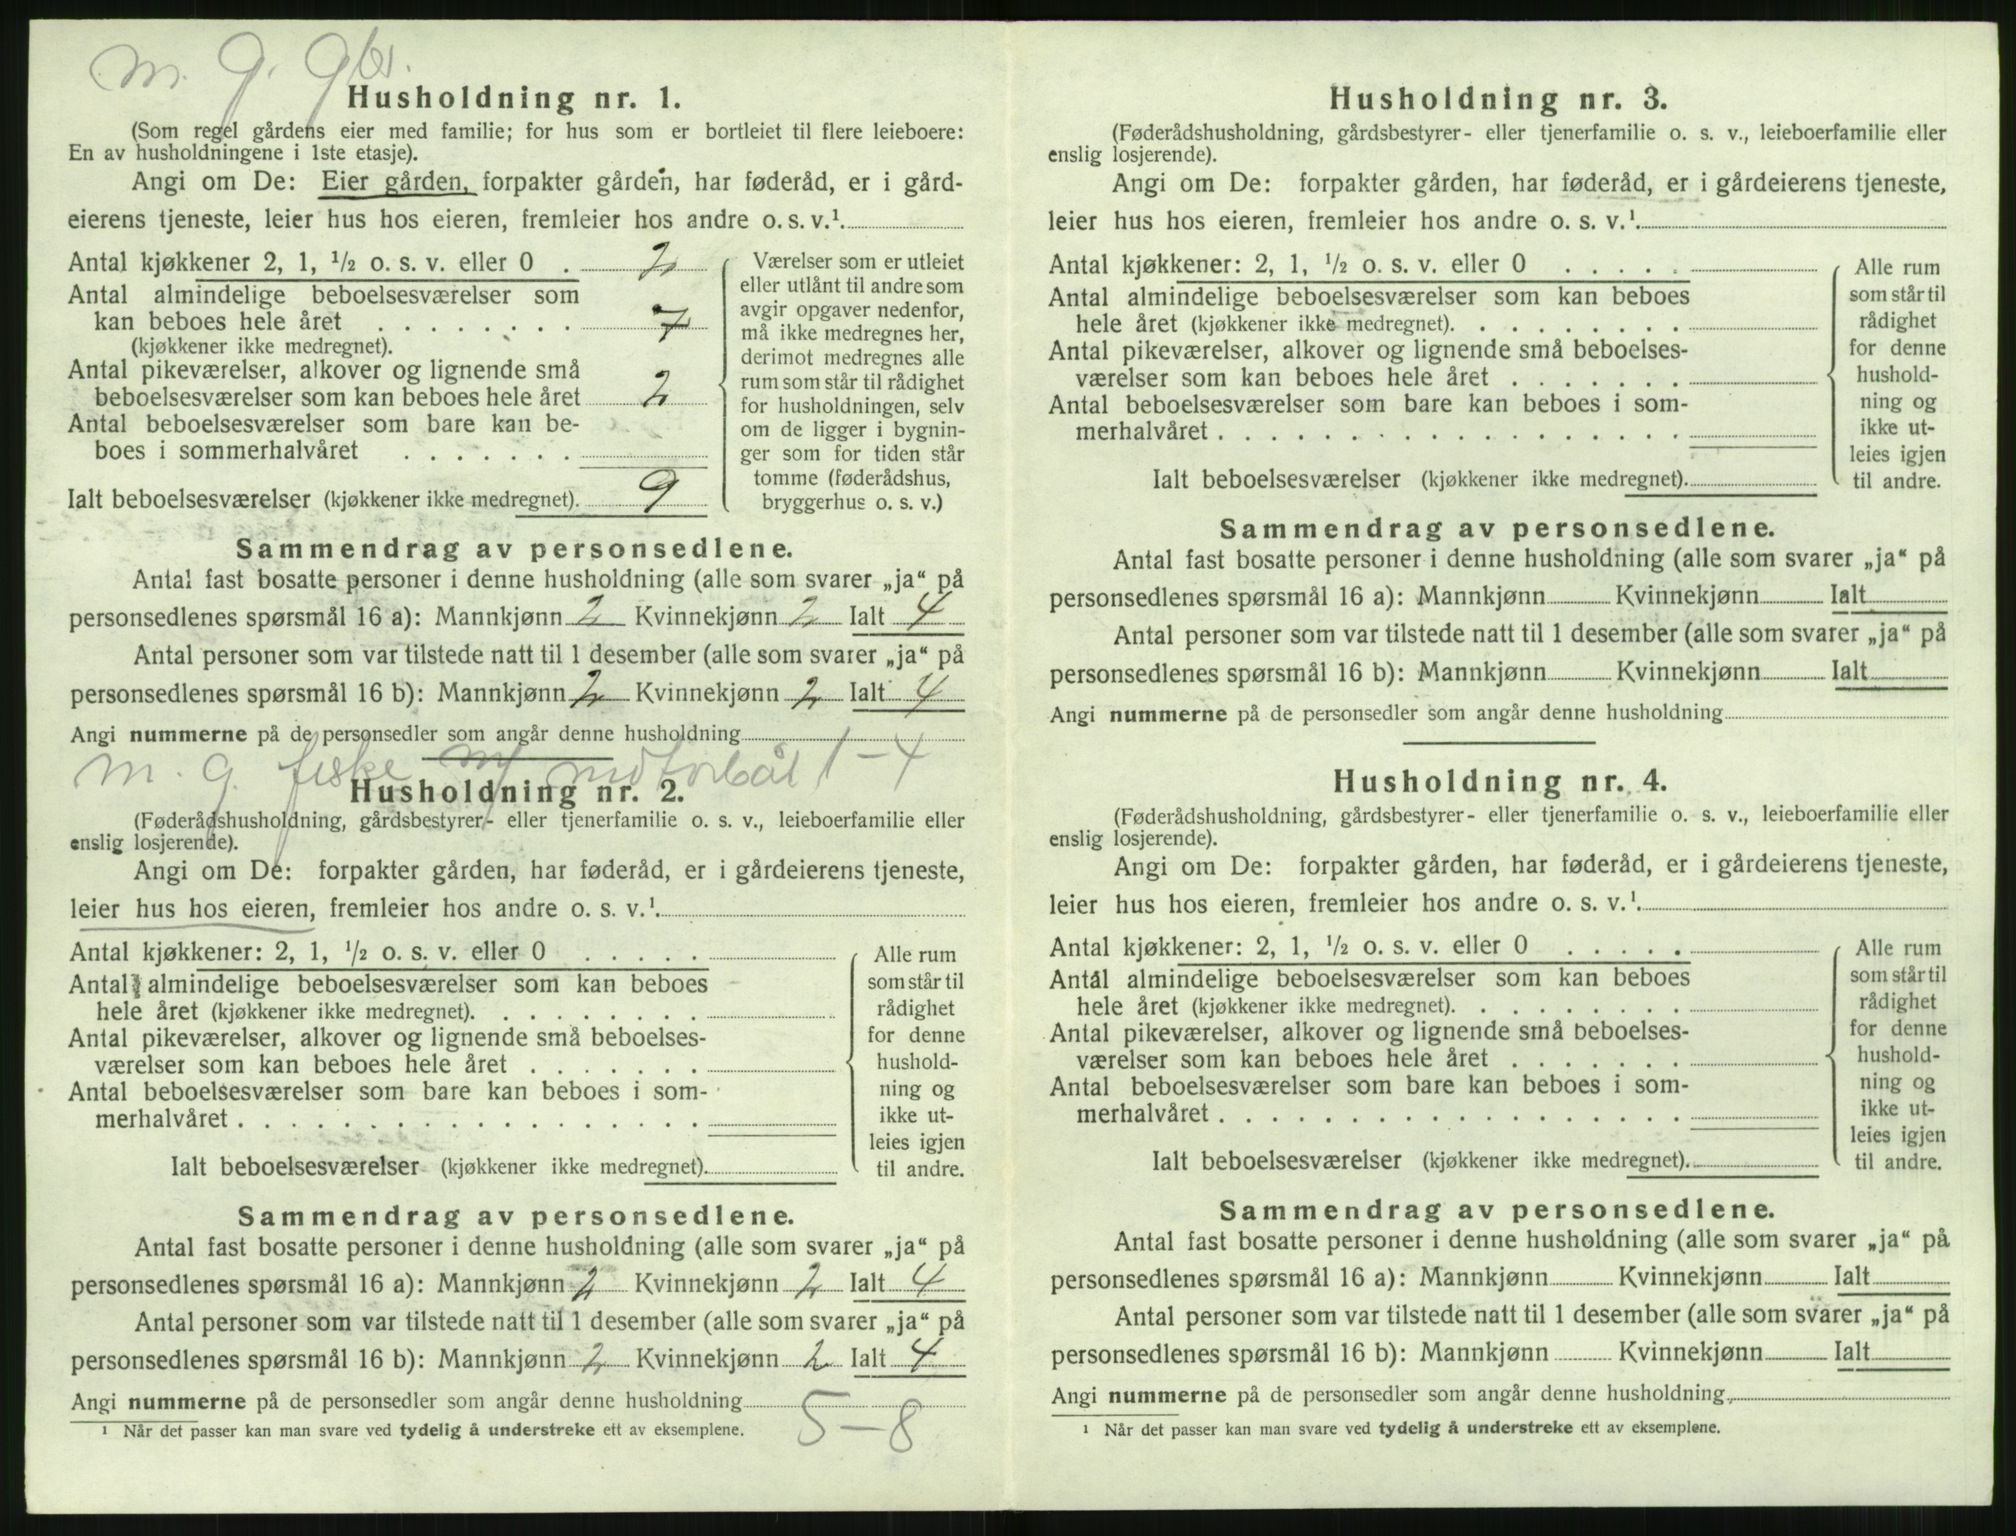 m. g. gbr.
Husholdning nr. 1.
(Som regel gårdens eier med familie; for hus som er bortleiet til flere leieboere:
En av husholdningene i 1ste etasje).
Angi om De: Eier gården, forpakter gården, har føderåd, er i gård-
eierens tjeneste, leier hus hos eieren, fremleier hos andre o. s. v.¹.
Antal kjøkkener 2, 1, ½ o. s. v. eller 0 . 2
Antal almindelige beboelsesværelser som
kan beboes hele året . . . . . . . . 7
(kjøkkener ikke medregnet).
Antal pikeværelser, alkover og lignende små
beboelsesværelser som kan beboes hele året 2
Antal beboelsesværelser som bare kan be-
boes i sommerhalvåret . . . . . . .
Ialt beboelsesværelser (kjøkkener ikke medregnet). 9
Værelser som er utleiet
eller utlånt til andre som
avgir opgaver nedenfor,
må ikke medregnes her,
derimot medregnes alle
rum som står til rådighet
for husholdningen, selv
om de ligger i bygnin-
ger som for tiden står
tomme (føderådshus,
bryggerhus o. s. v.)
Sammendrag av personsedlene.
Antal fast bosatte personer i denne husholdning (alle som svarer „ja“ på
personsedlenes spørsmål 16 a): Mannkjønn 2 Kvinnekjønn 2 Ialt 4
Antal personer som var tilstede natt til 1 desember (alle som svarer „ja“ på
personsedlenes spørsmål 16 b): Mannkjønn 2 Kvinnekjønn 2 Ialt 4
Angi nummerne på de personsedler som angår denne husholdning
m. g. fiske m/ motorbåt 1-4
Husholdning nr. 2.
(Føderådshusholdning, gårdsbestyrer- eller tjenerfamilie o. s. v., leieboerfamilie eller
enslig losjerende).
Angi om De: forpakter gården, har føderåd, er i gårdeierens tjeneste,
leier hus hos eieren, fremleier hos andre o. s. v.¹.
Antal kjøkkener: 2, 1, ½ o. s. v. eller 0 . . . . .
Antal almindelige beboelsesværelser som kan beboes
hele året (kjøkkener ikke medregnet). . . . . . . . .
Antal pikeværelser, alkover og lignende små beboelses-
værelser som kan beboes hele året . . . . . . .
Antal beboelsesværelser som bare kan beboes i som-
merhalvåret . . . . . . . . . . . . . . . . . .
Ialt beboelsesværelser (kjøkkener ikke medregnet).
Alle rum
som står til
rådighet
for denne
hushold-
ning og
ikke ut-
leies igjen
til andre.
Sammendrag av personsedlene.
Antal fast bosatte personer i denne husholdning (alle som svarer „ja“ på
personsedlenes spørsmål 16 a): Mannkjønn 2 Kvinnekjønn 2 Ialt 4
Antal personer som var tilstede natt til 1 desember (alle som svarer „ja“ på
personsedlenes spørsmål 16 b): Mannkjønn 2 Kvinnekjønn 2 Ialt 4
Angi nummerne på de personsedler som angår denne husholdning
5-8
¹ Når det passer kan man svare ved tydelig å understreke ett av eksemplene.
Husholdning nr. 3.
(Føderådshusholdning, gårdsbestyrer- eller tjenerfamilie o. s. v., leieboerfamilie eller
enslig losjerende).
Angi om De: forpakter gården, har føderåd, er i gårdeierens tjeneste,
leier hus hos eieren, fremleier hos andre o. s. v.¹.
Antal kjøkkener: 2, 1, ½ o. s. v. eller 0 . . . . .
Antal almindelige beboelsesværelser som kan beboes
hele året (kjøkkener ikke medregnet). . . . . . . . .
Antal pikeværelser, alkover og lignende små beboelses-
værelser som kan beboes hele året . . . . . . .
Antal beboelsesværelser som bare kan beboes i som-
merhalvåret . . . . . . . . . . . . . . . . . .
Ialt beboelsesværelser (kjøkkener ikke medregnet).
Alle rum
som står til
rådighet
for denne
hushold-
ning og
ikke ut-
leies igjen
til andre.
Sammendrag av personsedlene.
Antal fast bosatte personer i denne husholdning (alle som svarer „ja“ på
personsedlenes spørsmål 16 a): Mannkjønn Kvinnekjønn Ialt
Antal personer som var tilstede natt til 1 desember (alle som svarer „ja“ på
personsedlenes spørsmål 16 b): Mannkjønn Kvinnekjønn Ialt
Angi nummerne på de personsedler som angår denne husholdning
Husholdning nr. 4.
(Føderådshusholdning, gårdsbestyrer- eller tjenerfamilie o. s. v., leieboerfamilie eller
enslig losjerende).
Angi om De: forpakter gården, har føderåd, er i gårdeierens tjeneste,
leier hus hos eieren, fremleier hos andre o. s. v.¹.
Antal kjøkkener: 2, 1, ½ o. s. v. eller 0 . . . . .
Antal almindelige beboelsesværelser som kan beboes
hele året (kjøkkener ikke medregnet). . . . . . . . .
Antal pikeværelser, alkover og lignende små beboelses-
værelser som kan beboes hele året . . . . . . .
Antal beboelsesværelser som bare kan beboes i som-
merhalvåret . . . . . . . . . . . . . . . . . .
Ialt beboelsesværelser (kjøkkener ikke medregnet).
Alle rum
som står til
rådighet
for denne
hushold-
ning og
ikke ut-
leies igjen
til andre.
Sammendrag av personsedlene.
Antal fast bosatte personer i denne husholdning (alle som svarer „ja“ på
personsedlenes spørsmål 16 a): Mannkjønn Kvinnekjønn Ialt
Antal personer som var tilstede natt til 1 desember (alle som svarer „ja“ på
personsedlenes spørsmål 16 b): Mannkjønn Kvinnekjønn Ialt
Angi nummerne på de personsedler som angår denne husholdning
¹ Når det passer kan man svare ved tydelig å understreke ett av eksemplene.